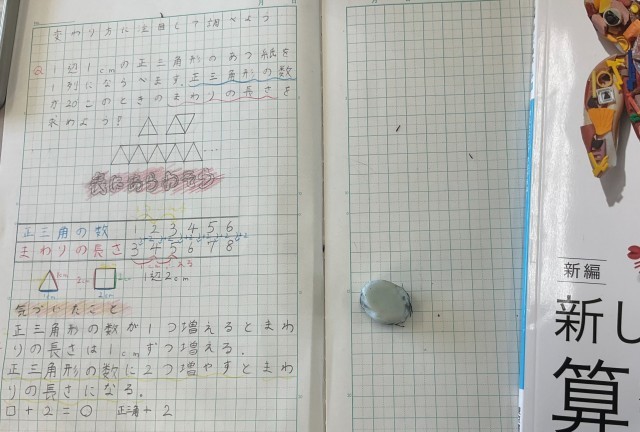 変わり方に注目して調べよう
1辺1cmの正三角形のあつ紙を
1列にならべます。正三角形の数
が20このときのまわりの長さを
求めよう?
表にあらわそう
正三角の数 1 2 3 4 5 6
まわりの長さ 3 4 5 6 7 8
1辺2cm
気づいたこと
正三角形の数が1つ増えるとまわ
りの長さは1cmずつ増える。
正三角形の数に2つ増やすとまわ
りの長さになる。
□+2=○ 正三角+2
新編
新し
算